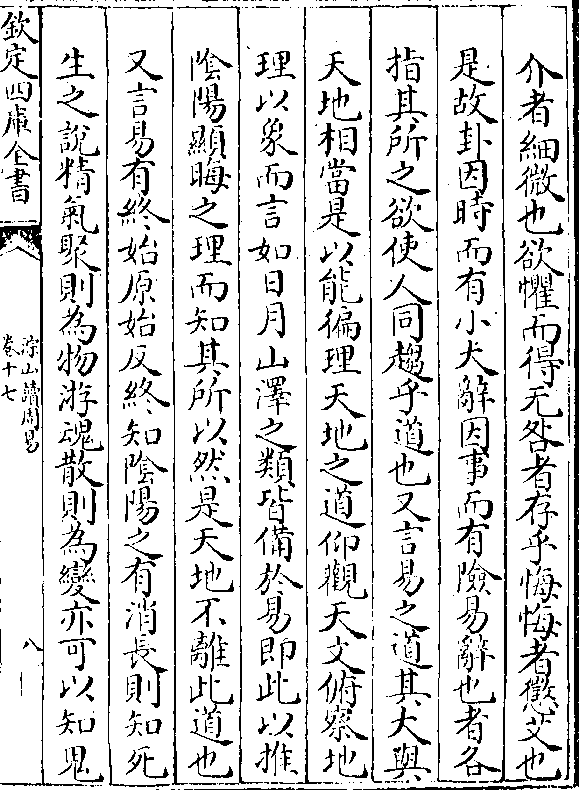 介者細微也欲懼而得无咎者存乎悔悔者懲艾也
是故卦因時而有小大辭因事而有險易辭也者各
指其所之欲使人同趨乎道也又言易之道其大與
天地相當是以能徧理天地之道仰觀天文俯察地
理以象而言如日月山澤之類皆備於易即此以推
陰陽顯晦之理而知其所以然是天地不離此道也
又言易有終始原始反終知陰陽之有消長則知死
生之說精氣聚則為物游魂散則為變亦可以知鬼
欽定四庫全書
淙山讀周易
卷十七
八